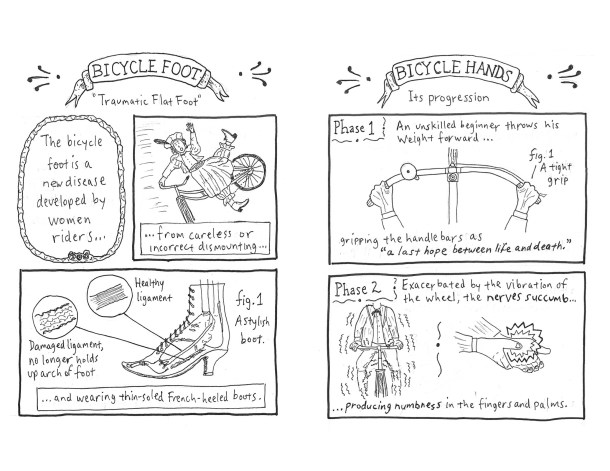 BICYCLE FOOT
"Traumatic Flat Foot"
The bicycle
foot is a
new disease
developed by
women
riders...
...from careless or
incorrect dismounting...
Healthy
ligament
fig. 1
A stylish
boot.
Damaged ligament,
no longer holds
up arch of foot
...and wearing thin-soled French-heeled boots.
BICYCLE HANDS
Its progression
Phase 1
An unskilled beginner throws his
weight forward...
fig. 1
A tight
grip
gripping the handlebars as
"a last hope between life and death."
Phase 2
Exacerbated by the vibration of
the wheel, the nerves succumb...
...producing numbness in the fingers and palms.